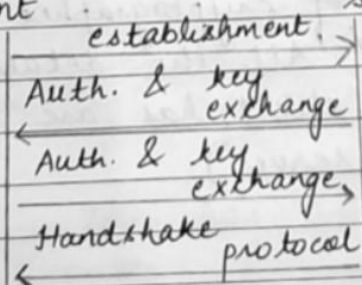 nt
establishment.
Auth. & key
exchange
Auth. & key
exchange
Handshake
protocol